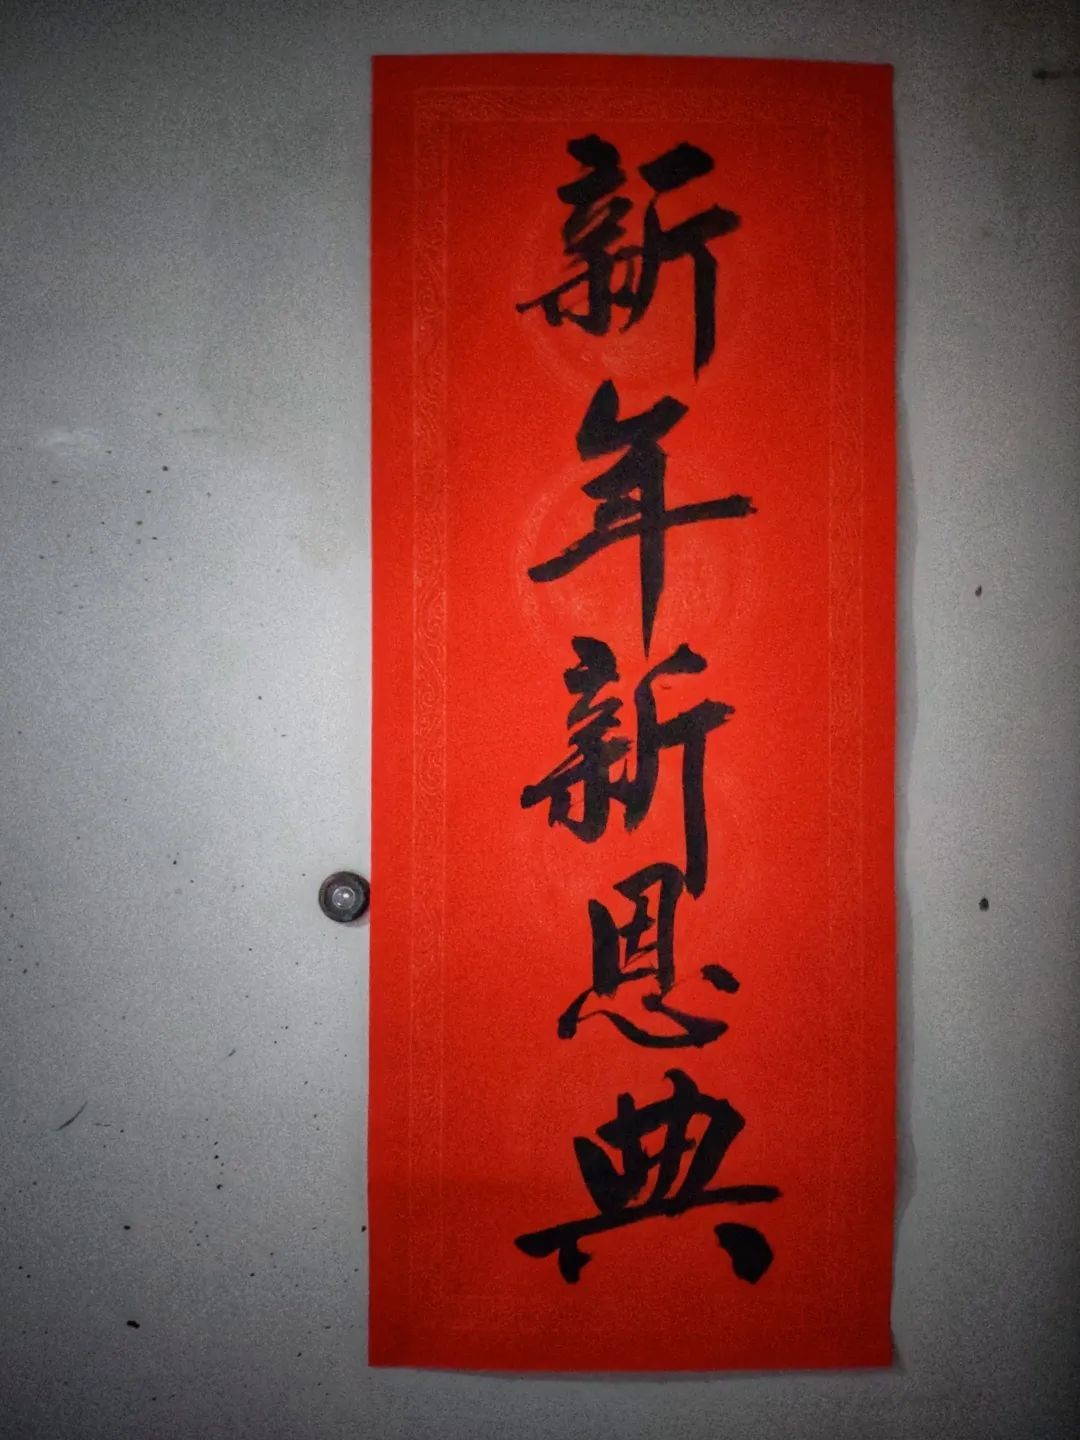 新年新恩典